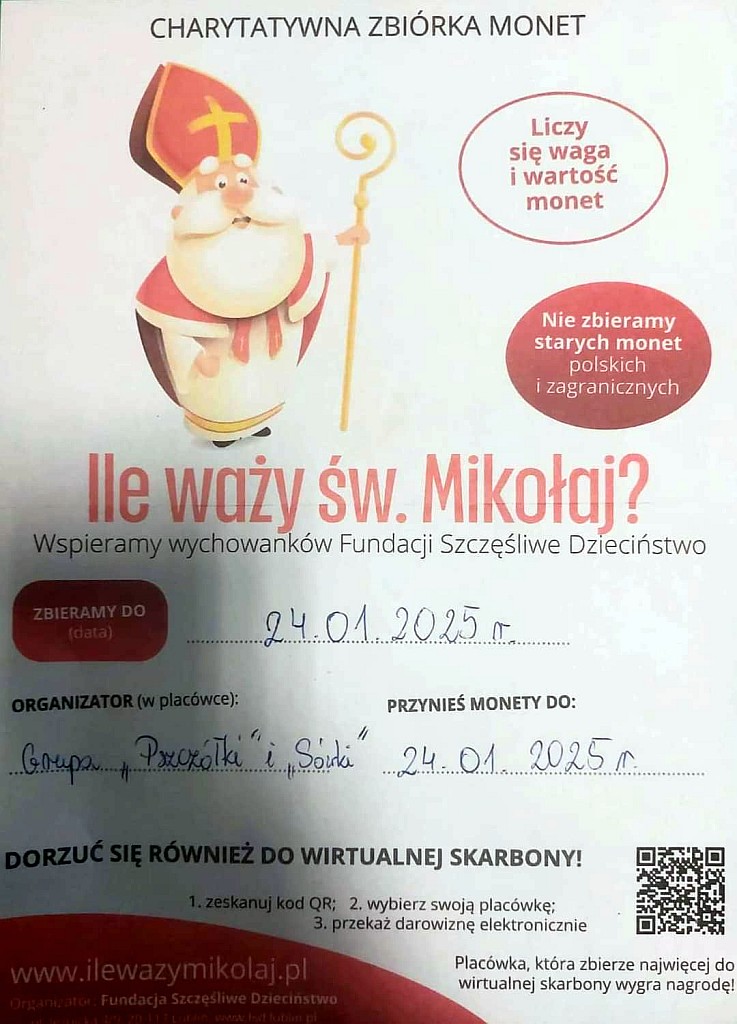 CHARYTATYWNA ZBIÓRKA MONET
Liczy
się waga
i wartość
monet
Nie zbieramy
starych monet
polskich
i zagranicznych
Ile waży św. Mikołaj?
Wspieramy wychowanków Fundacji Szczęśliwe Dzieciństwo
ZBIERAMY DO
(data)
24.01.2025 r.
ORGANIZATOR (w placówce):
Grupa „Pszczółki” i „Sówki”
PRZYNIEŚ MONETY DO:
24.01.2025 r.
DORZUĆ SIĘ RÓWNIEŻ DO WIRTUALNEJ SKARBONY!
1. zeskanuj kod QR; 2. wybierz swoją placówkę;
3. przekaż darowiznę elektronicznie
www.ilewazymikolaj.pl
Organizator: Fundacja Szczęśliwe Dzieciństwo
www.fsd.lublin.pl
Placówka, która zbierze najwięcej do
wirtualnej skarbony wygra nagrodę!